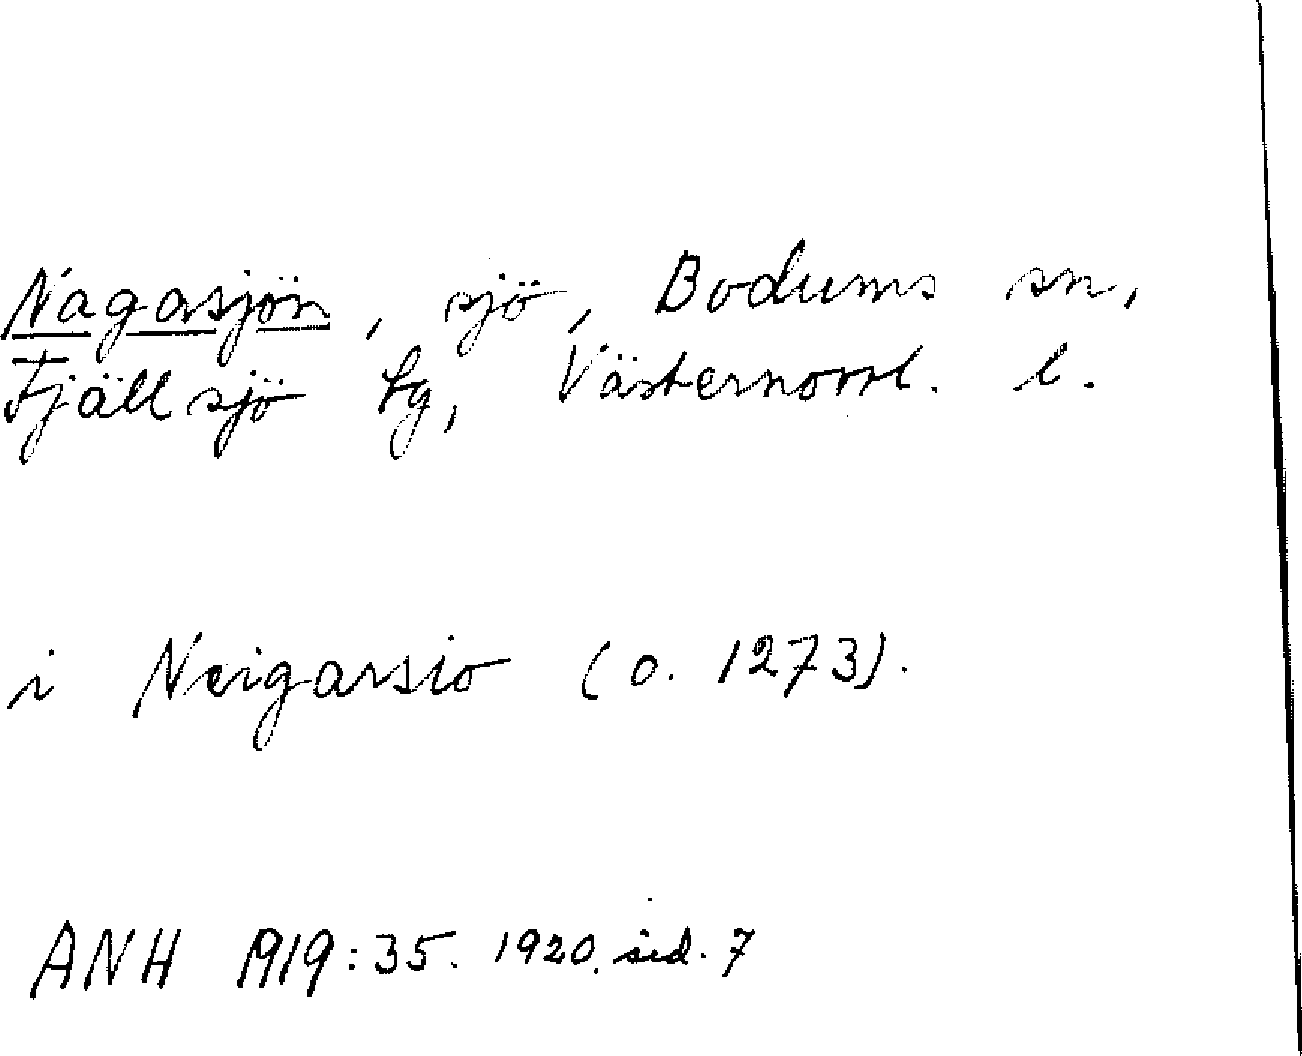 Nagasjön, sjö, Bodums sn,
Fjällsjö tg, Västernorrl. l.
i Neigarsio (o. 1273).
ANH 1919:35. 1920. sid. 7